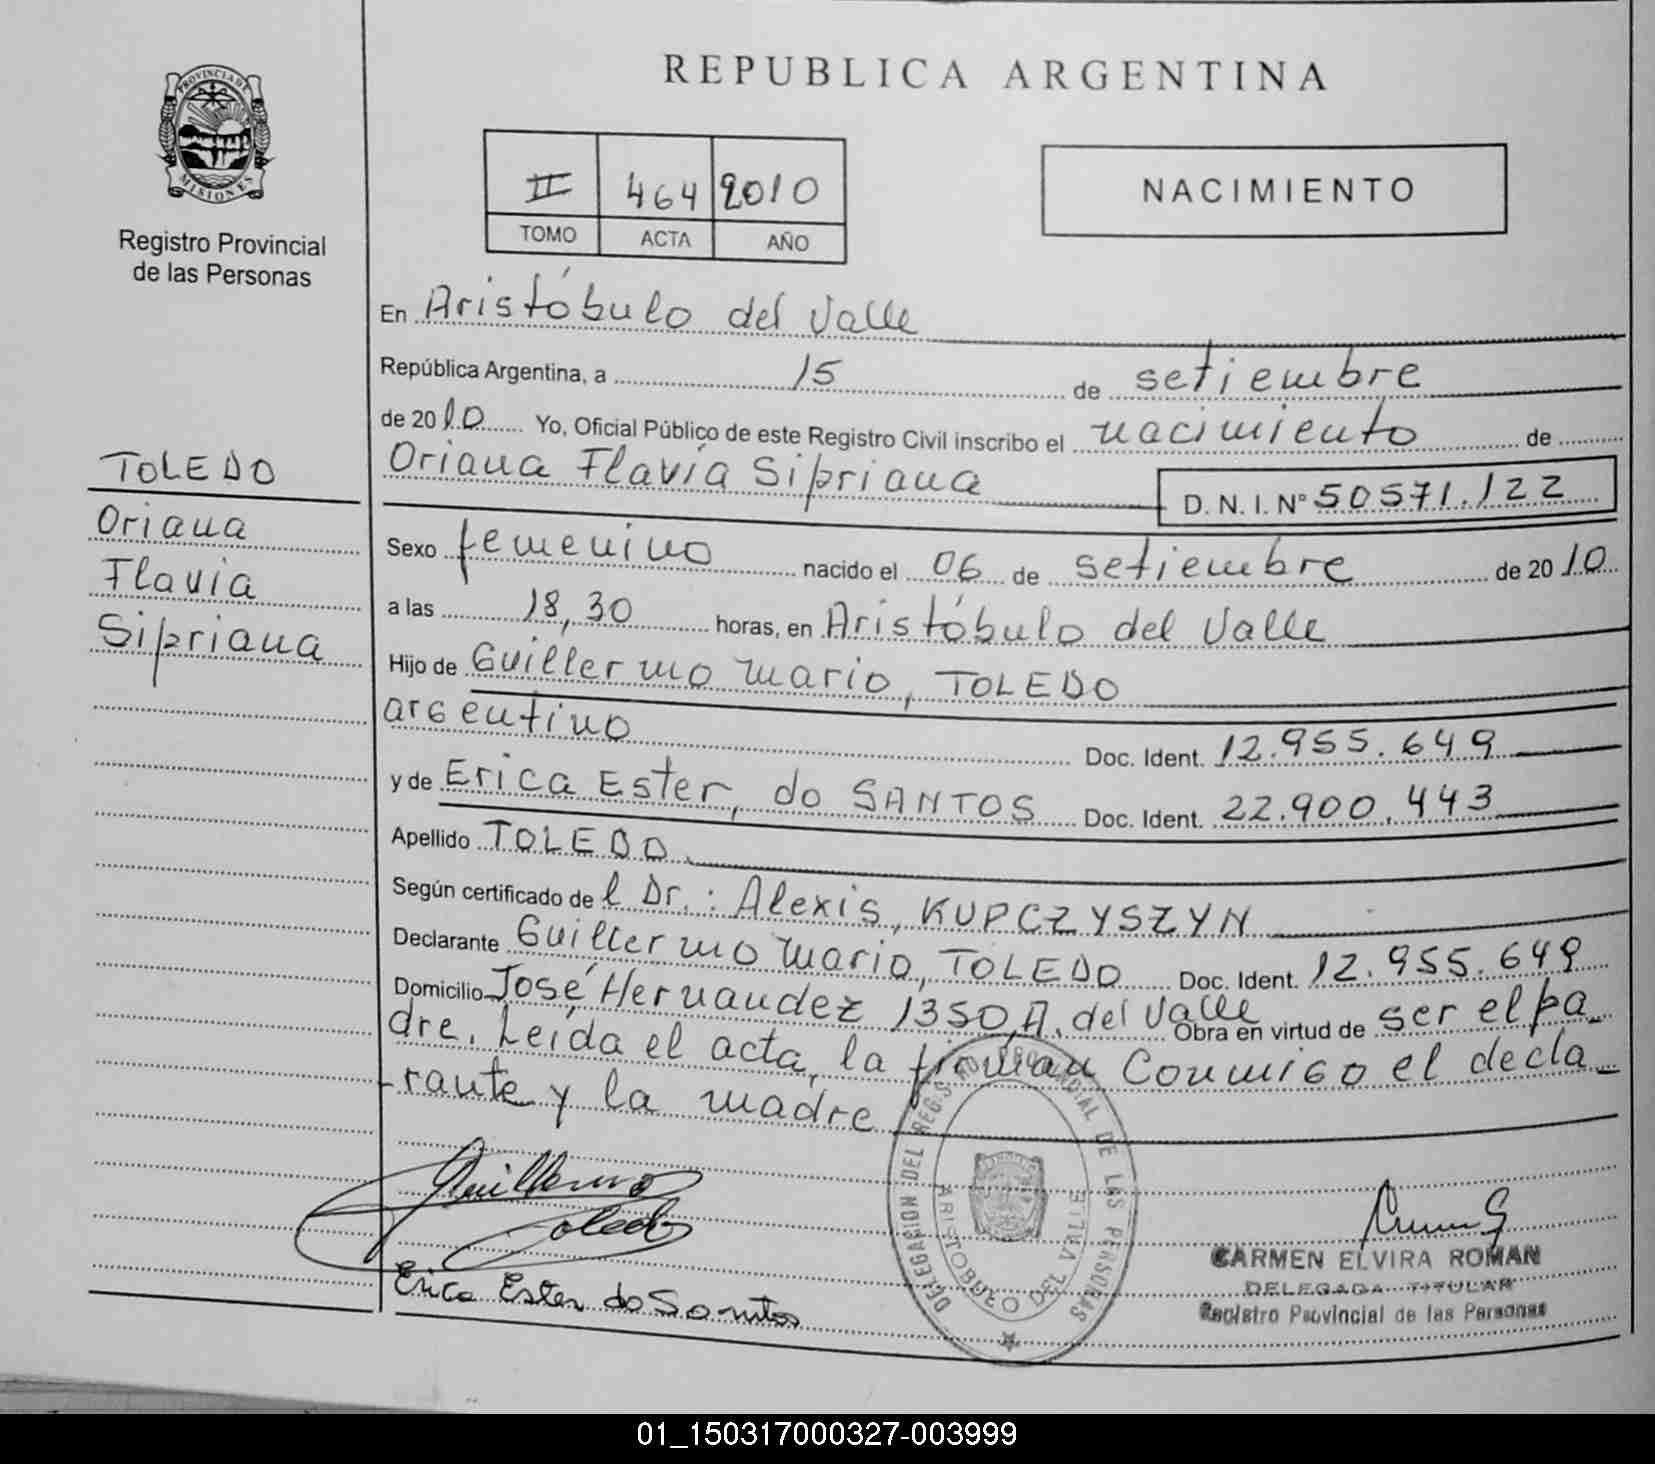 REPUBLICA ARGENTINA
PROVINCIA DE
MISIONES
Registro Provincial
de las Personas
II 464 2010
TOMO ACTA AÑO
NACIMIENTO
En Aristóbulo del Valle
República Argentina, a 15 de setiembre
de 2010 Yo, Oficial Público de este Registro Civil inscribo el nacimiento de
Oriana Flavia Sipriana D. N. I. Nº 50571.122
TOLEDO
Oriana
Flavia
Sipriana
Sexo femenino nacido el 06 de setiembre de 2010
a las 18,30 horas, en Aristóbulo del Valle
Hijo de Guillermo Mario, TOLEDO
argentino Doc. Ident. 12.955.649
y de Erica Ester, do SANTOS Doc. Ident. 22.900.443
Apellido TOLEDO
Según certificado de l Dr.: Alexis, KUPCZYSZYN
Declarante Guillermo Mario, TOLEDO Doc. Ident. 12.955.649
Domicilio José Hernandez 1350, A. del Valle Obra en virtud de ser el pa_
dre. Leída el acta, la firman Conmigo el decla_
-rante y la madre
Guillermo
Toledo
Erica Ester do Santos
DELEGACION DEL REG. PROVINCIAL DE LAS PERSONAS
ARISTOBULO DEL VALLE
CARMEN ELVIRA ROMAN
DELEGADA TITULAR
Registro Provincial de las Personas
01_150317000327-003999